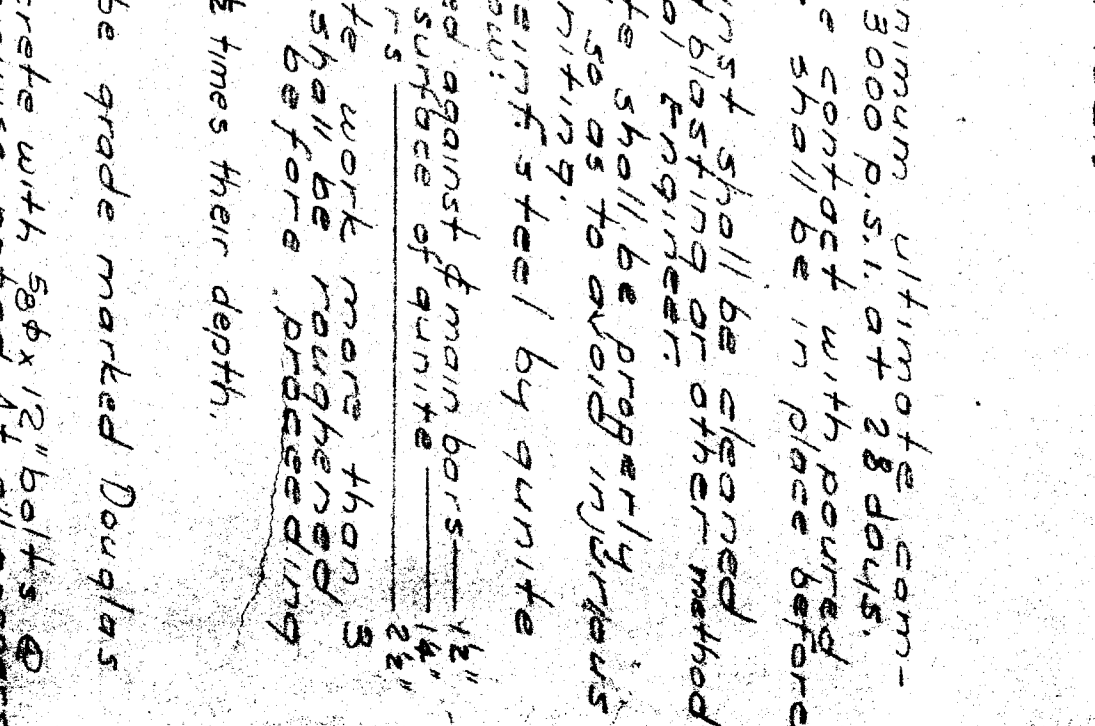 nimum ultimate com-
3000 p.s.i. at 28 days.
e contact with poured
shall be in place before
inst shall be cleaned
y blasting or other method
al Engineer.
te shall be properly
so as to avoid injurious
niting.
einf. steel by gunite
ow:
ed against & main bars — 1½"
surface of gunite — 1¼"
rs — 2½"
te work more than 3
shall be roughened
before proceeding
½ times their depth.
be grade marked Douglas
crete with ⅝φ x 12" bolts @